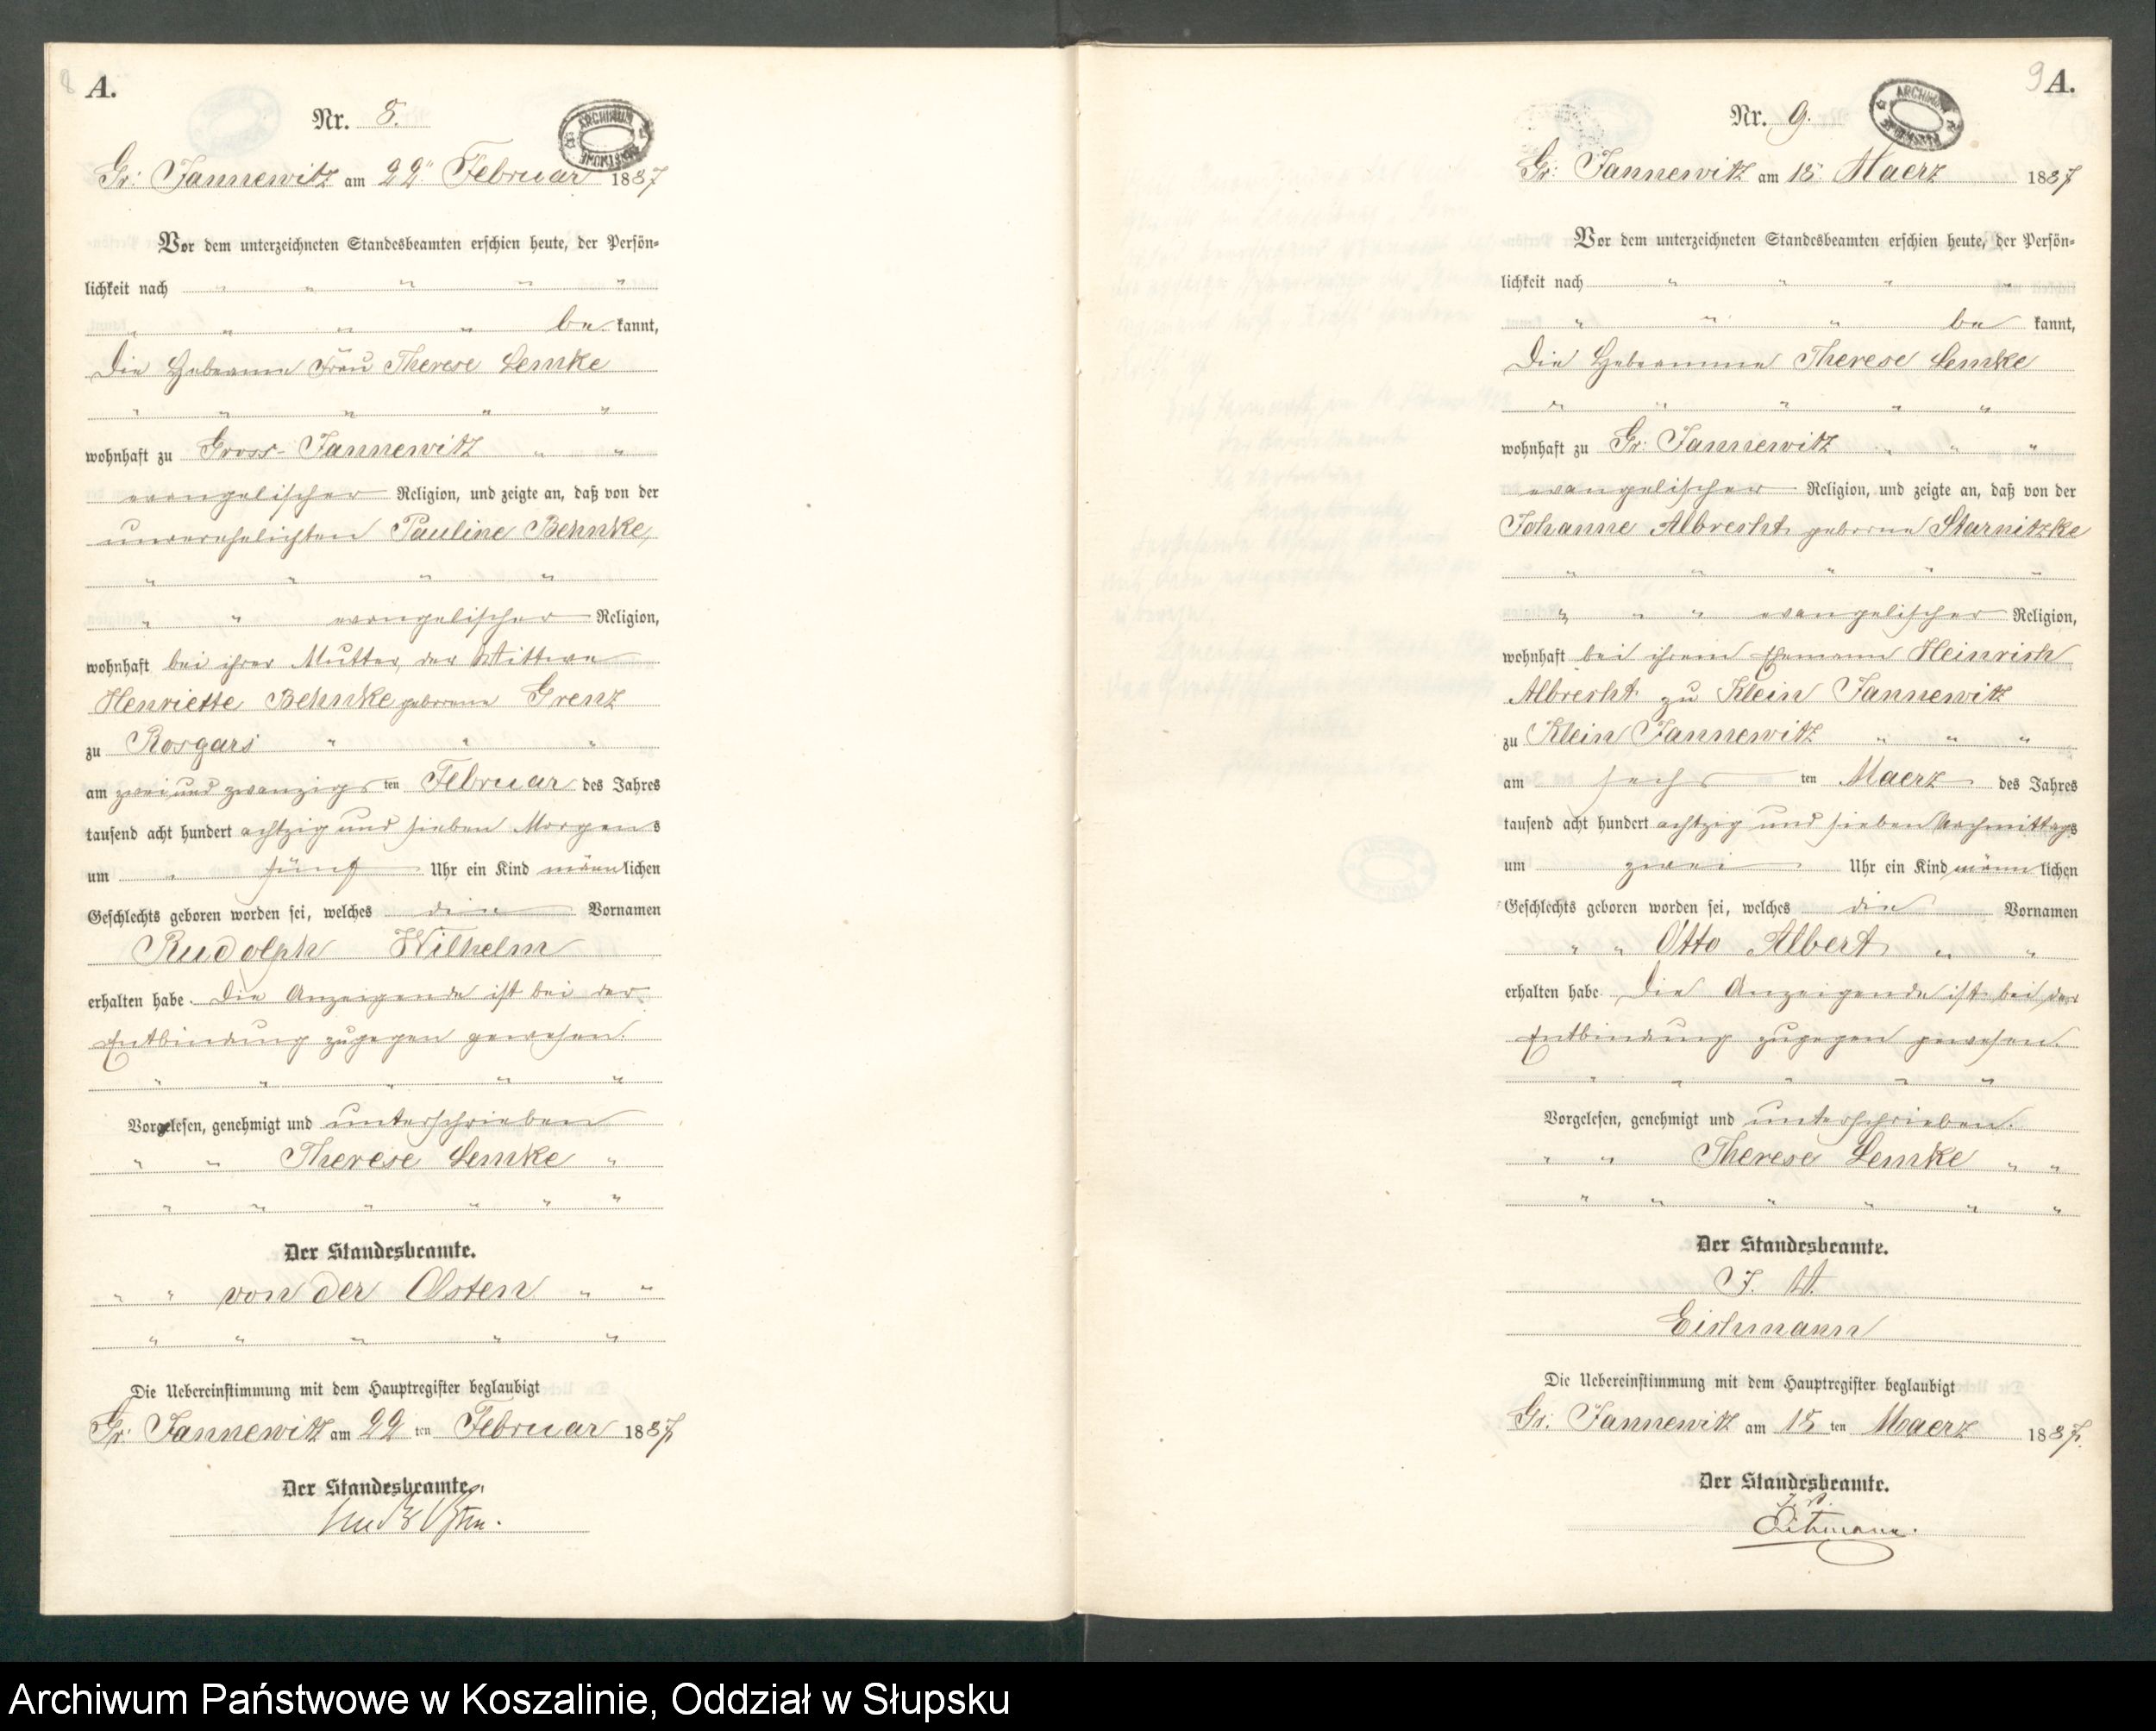 8
A.
Nr. 8.
ARCHIWUM
Gr: Jannewitz am 22" Februar 1887
Vor dem unterzeichneten Standesbeamten erschien heute, der Persön-
lichkeit nach " " " " "
" " " " be kannt,
die Hebamme Frau Therese Lemke
" " " " "
wohnhaft zu Gross-Jannewitz " "
evangelischer Religion, und zeigte an, daß von der
unverehelichten Pauline Behnke,
" " " "
" " evangelischer Religion,
wohnhaft bei ihrer Mutter, der Wittwe
Henriette Behnke geborene Grenz
zu Rosgars " " "
am zwei und zwanzigs ten Februar des Jahres
tausend acht hundert achtzig und sieben Morgens
um " fünf Uhr ein Kind männlichen
Geschlechts geboren worden sei, welches die Vornamen
Rudolph Wilhelm
erhalten habe. Die Anzeigende ist bei der
Entbindung zugegen gewesen.
" " " " "
Vorgelesen, genehmigt und unterschrieben
" " Therese Lemke "
" " " " " "
Der Standesbeamte.
" " von der Osten " "
" " " " "
Die Uebereinstimmung mit dem Hauptregister beglaubigt
Gr: Jannewitz am 22 ten Februar 1887
Der Standesbeamte.
9
A.
Nr. 9.
ARCHIWUM
Gr: Jannewitz am 15" Maerz 1887
Vor dem unterzeichneten Standesbeamten erschien heute, der Persön-
lichkeit nach " " " "
" " " be kannt,
die Hebamme Therese Lemke
" " " " "
wohnhaft zu Gr: Jannewitz " " "
evangelischer Religion, und zeigte an, daß von der
Johanne Albrecht geborne Starnitzke
" " " " "
" " " evangelischer Religion,
wohnhaft bei ihrem Ehemann Heinrich
Albrecht zu Klein Jannewitz
zu Klein Jannewitz " " "
am sechs ten Maerz des Jahres
tausend acht hundert achtzig und sieben Nachmittags
um zwei Uhr ein Kind männ lichen
Geschlechts geboren worden sei, welches die Vornamen
" " Otto Albert " "
erhalten habe. Die Anzeigende ist bei der
Entbindung zugegen gewesen.
" " " " "
Vorgelesen, genehmigt und unterschrieben.
" " Therese Lemke " "
" " " " " "
Der Standesbeamte.
J. V.
Eichmann
Die Uebereinstimmung mit dem Hauptregister beglaubigt
Gr: Jannewitz am 15 ten Maerz 1887.
Der Standesbeamte.
J. V.
Eichmann.
Archiwum Państwowe w Koszalinie, Oddział w Słupsku